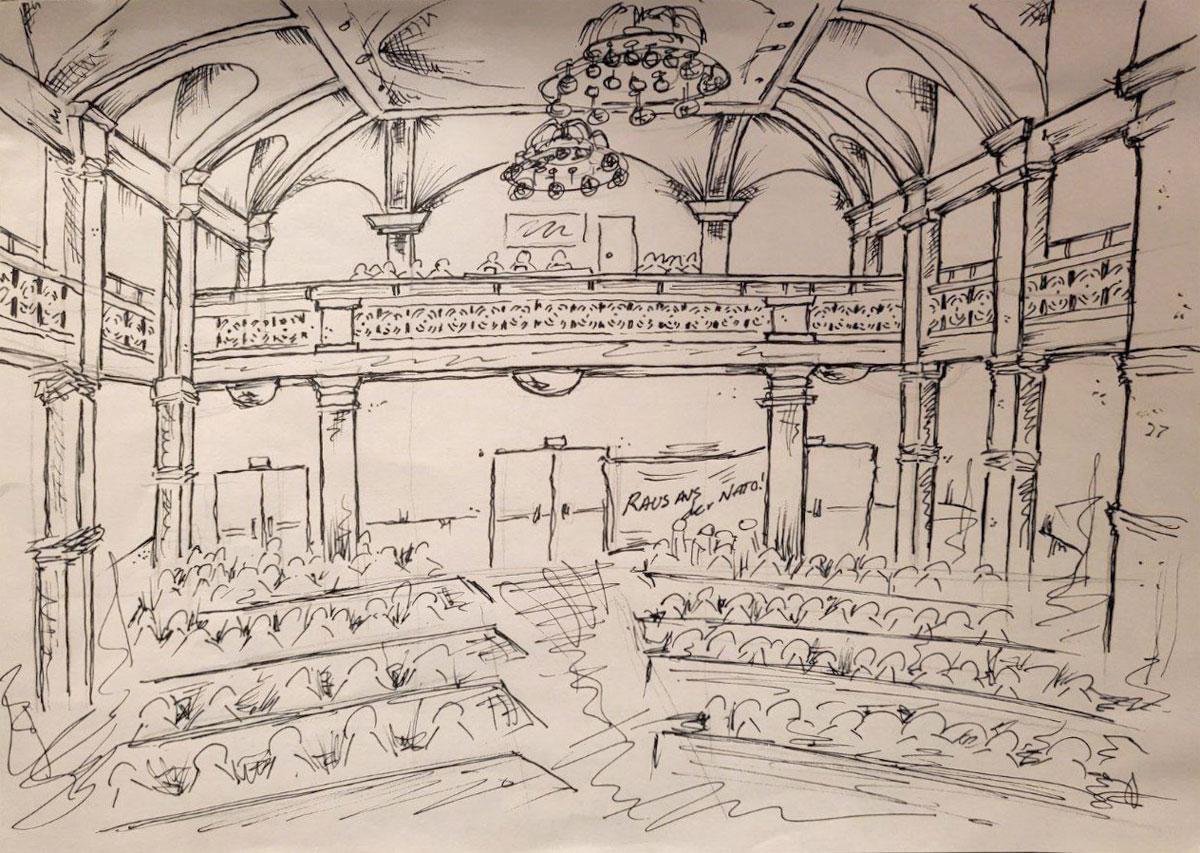 RAUS AUS
der NATO!